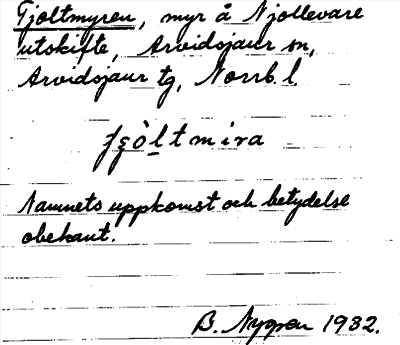 Tjoltmyren, myr å Njallevare
utskifte, Arvidsjaur sn,
Arvidsjaur tg, Norrb. l.
Namnets uppkomst och betydelse
obekant.
B. Nygren 1932.